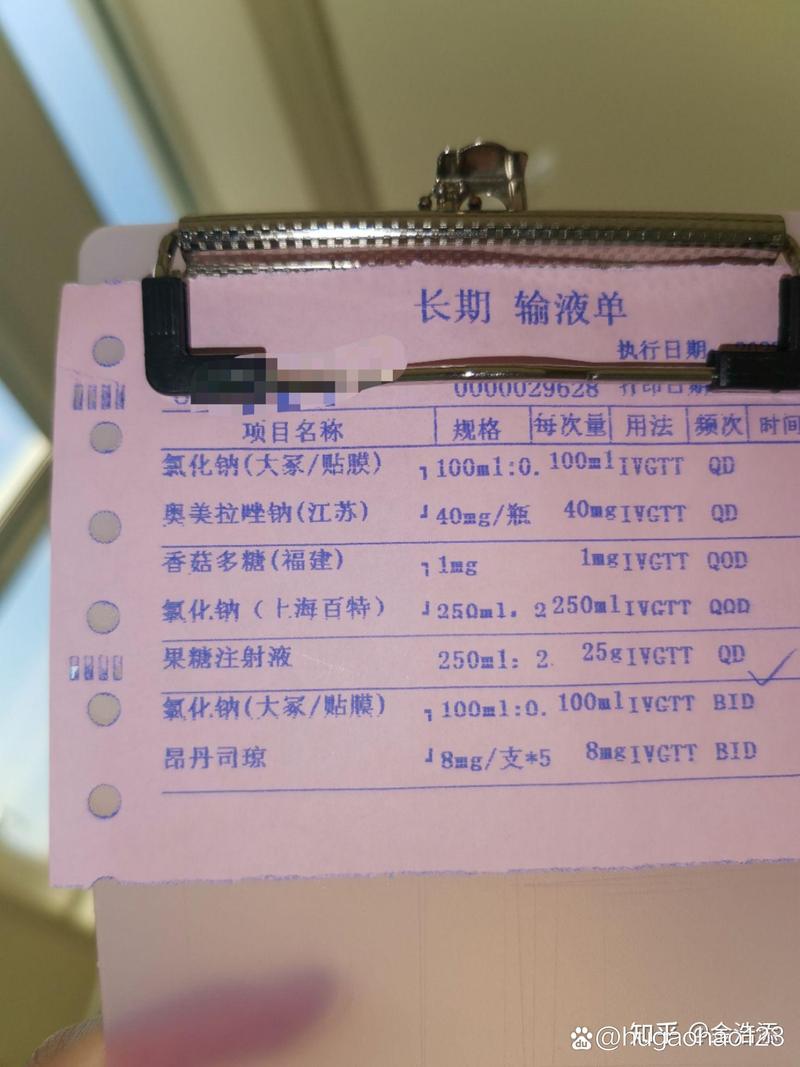 长期 输液单
执行日期
0000029628 打印日期
项目名称 规格 每次量 用法 频次 时间
氯化钠(大冢/贴膜) ┐100ml:0. 100ml IVGTT QD
奥美拉唑钠(江苏) ┘40mg/瓶 40mg IVGTT QD
香菇多糖(福建) ┐1mg 1mg IVGTT QOD
氯化钠（上海百特） ┘250ml. 2 250ml IVGTT QOD
果糖注射液 250ml: 2. 25g IVGTT QD
氯化钠(大冢/贴膜) ┐100ml:0. 100ml IVGTT BID
昂丹司琼 ┘8mg/支*5 8mg IVGTT BID
@hugaohao123
知乎